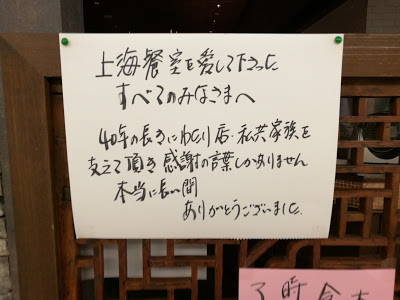 上海餐室を愛して下さった
すべてのみなさまへ
40年の長きにわたり店・私共家族を
支えて頂き感謝の言葉しかありません
本当に長い間
ありがとうございました.